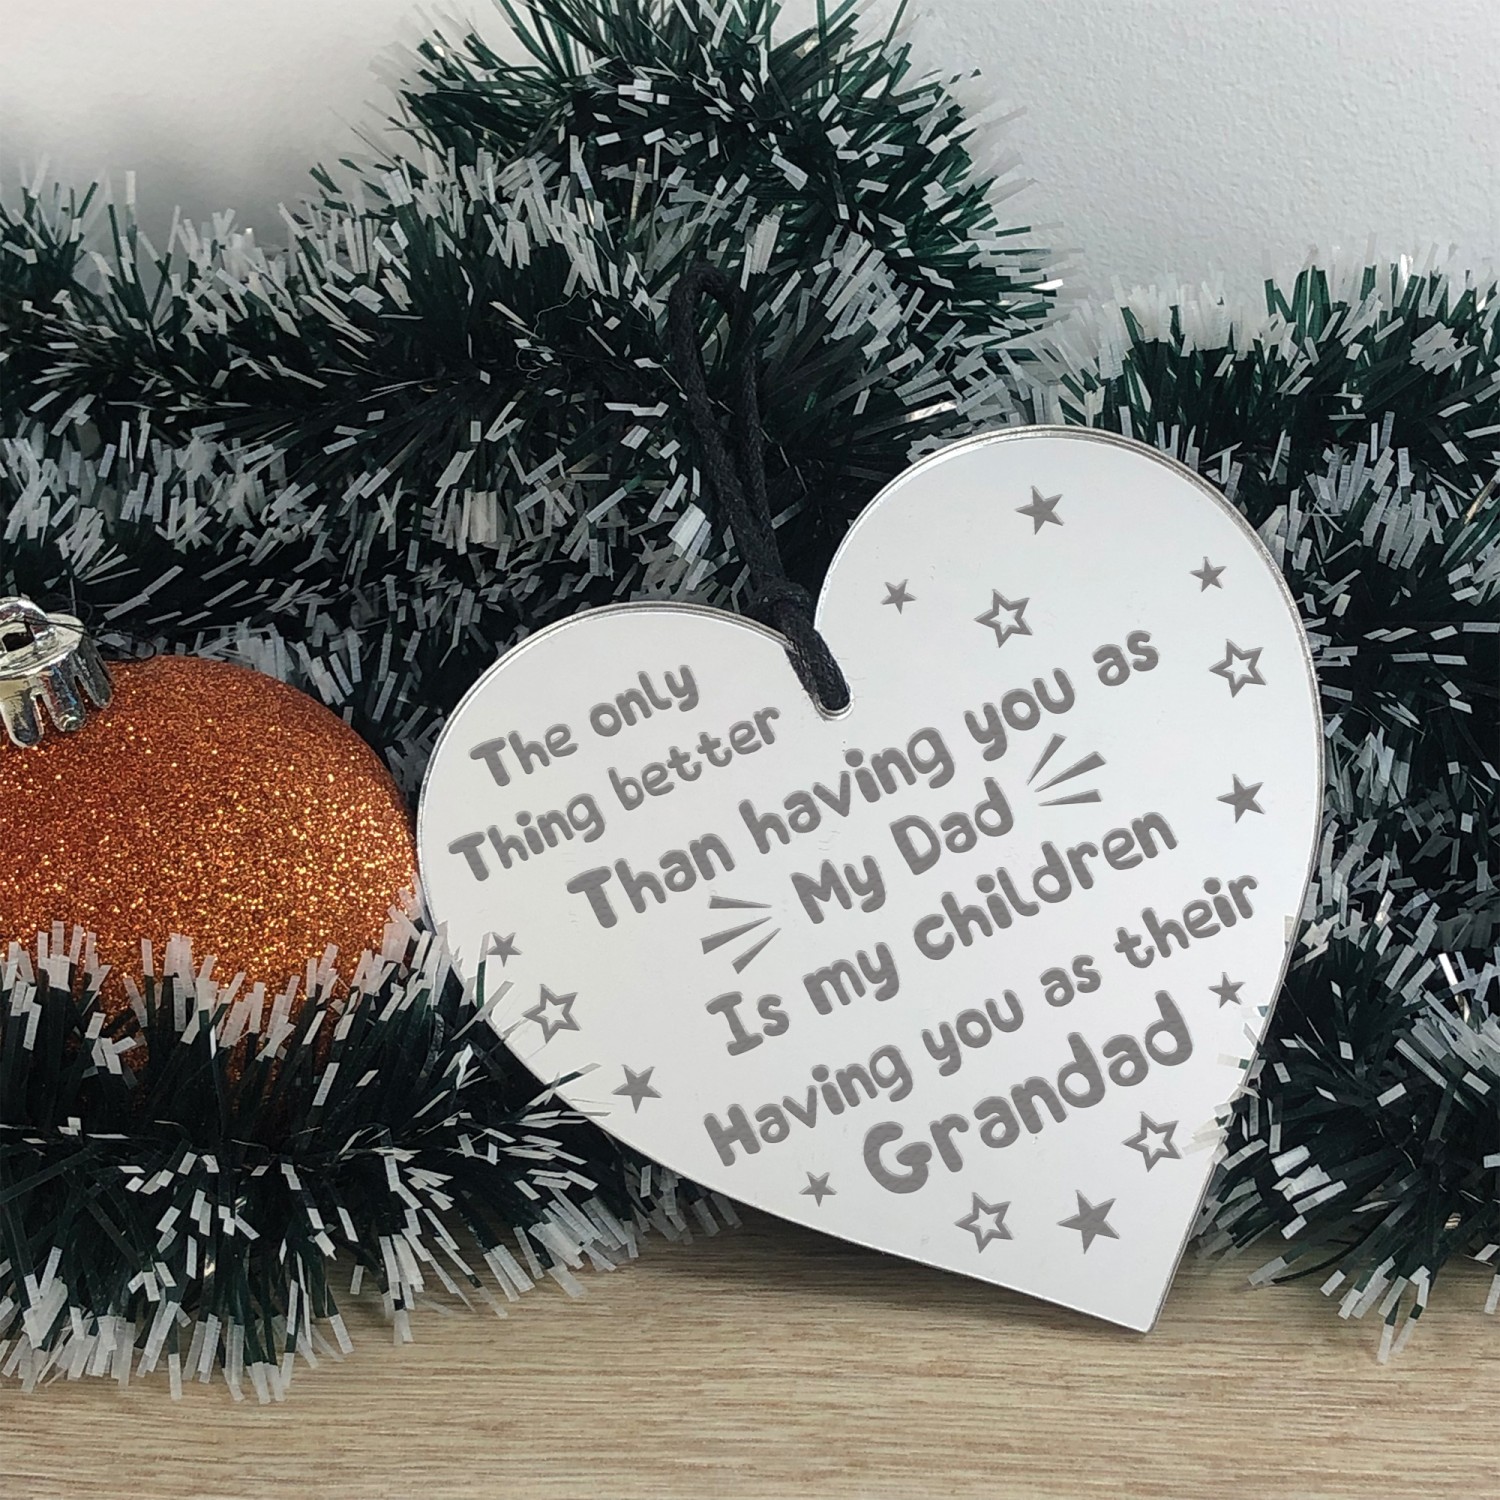 The only
Thing better
Than having you as
My Dad
Is my children
Having you as their
Grandad